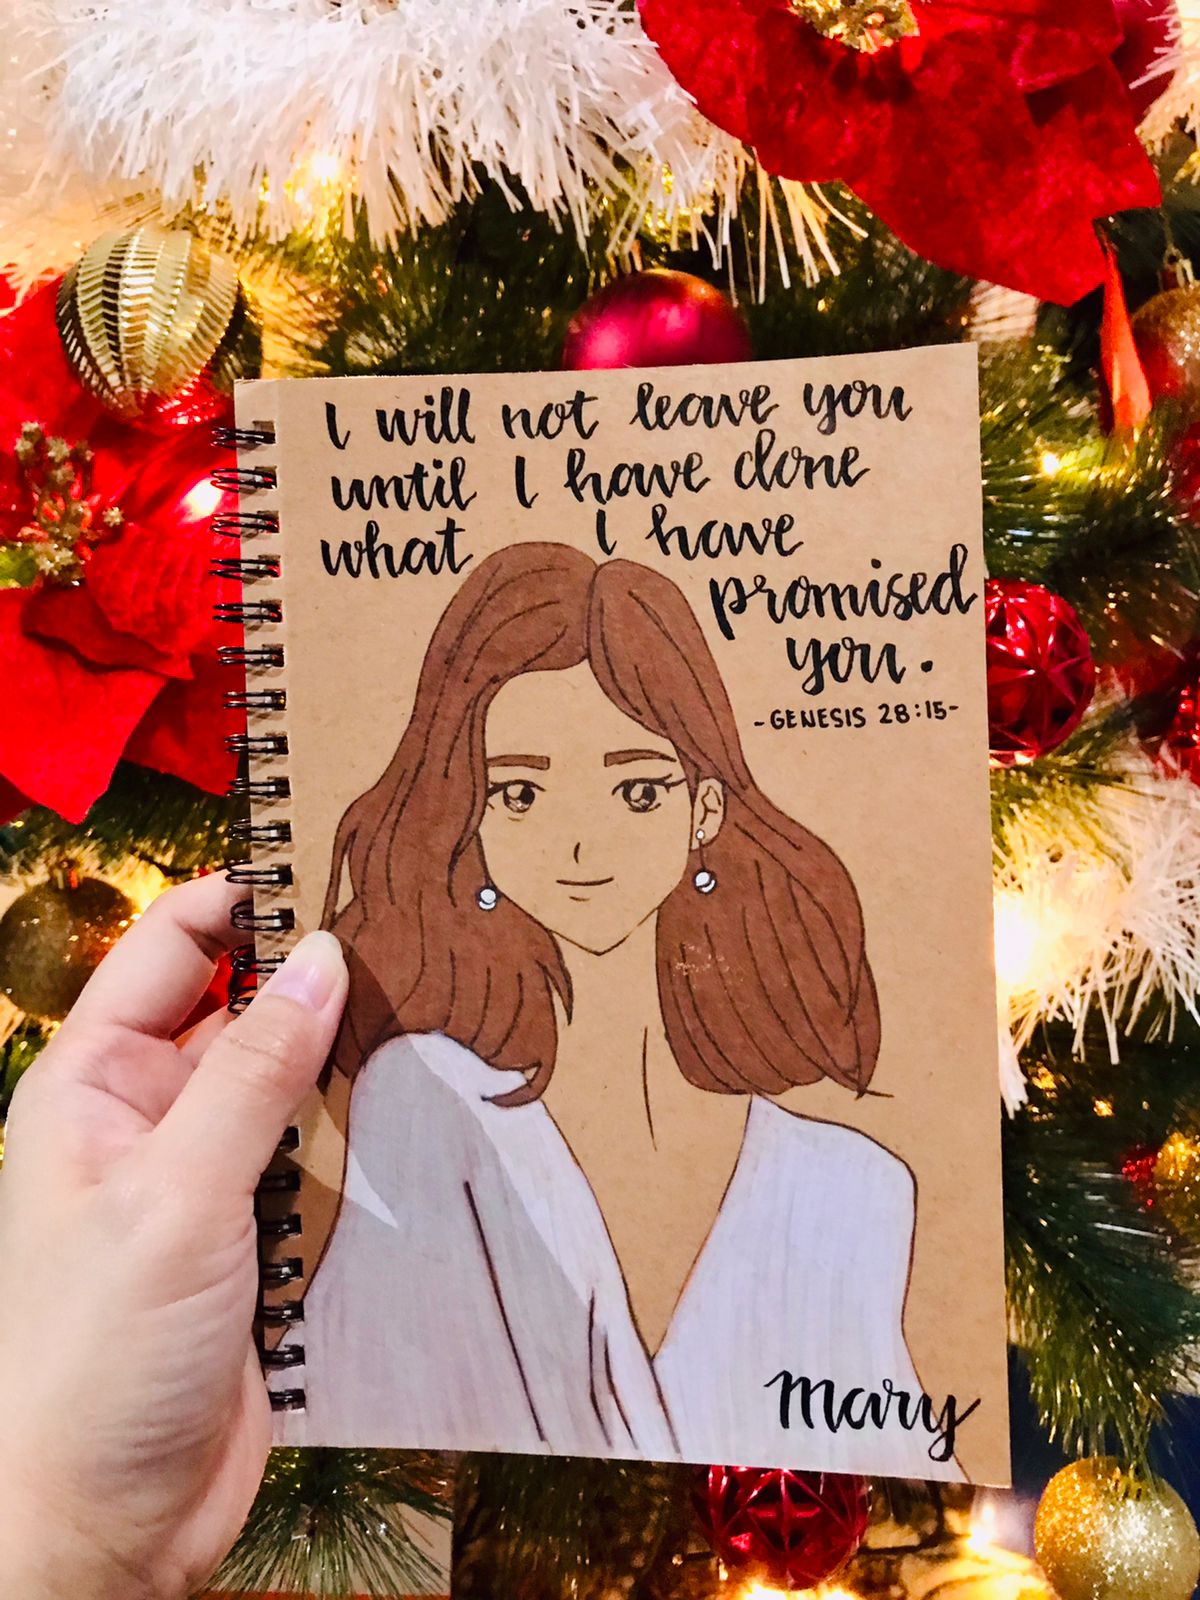 I will not leave you
until I have done
what I have
promised
you.
-GENESIS 28:15-
Mary